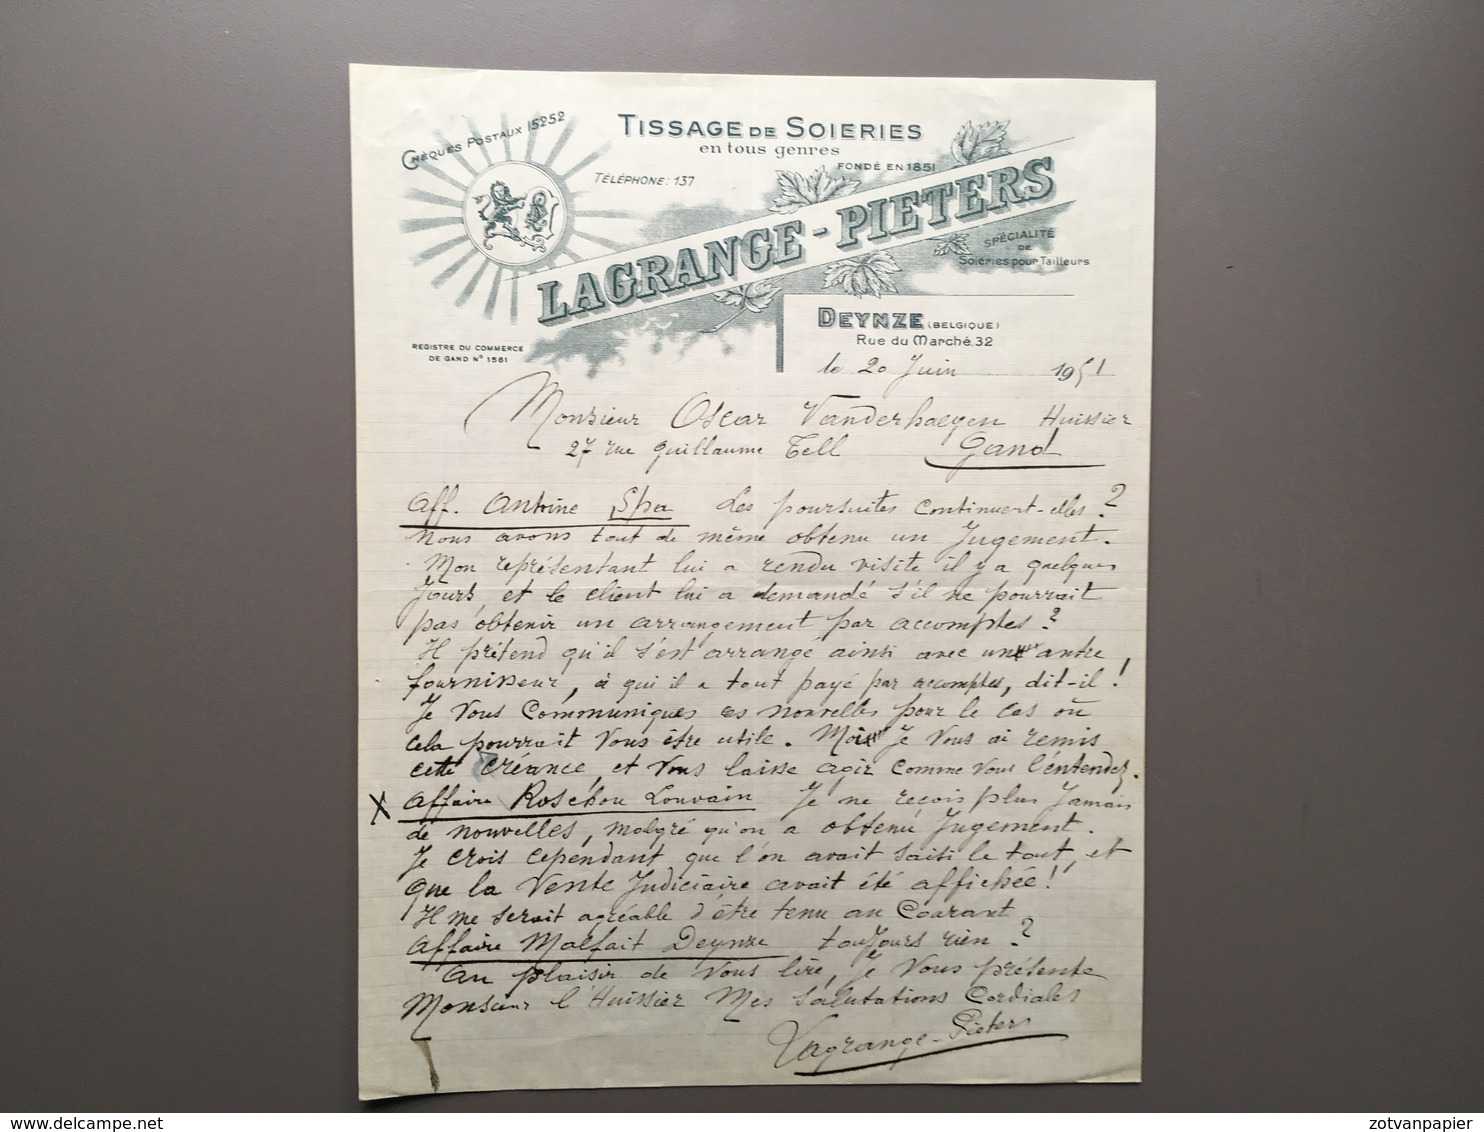 CHÈQUES POSTAUX 15252
TISSAGE DE SOIERIES
en tous genres
FONDÉ EN 1851
TÉLÉPHONE: 137
LAGRANGE-PIETERS
SPÉCIALITÉ
DE
Soieries pour Tailleurs
DEYNZE (BELGIQUE)
Rue du Marché.32
REGISTRE DU COMMERCE
DE GAND N° 1561
le 20 Juin 1951
Monsieur Oscar Vanderhaegen Huissier
27 rue Guillaume Tell Gand
Aff. Antoine Spa Les poursuites continuent-elles?
Nous avons tout de même obtenu un Jugement.
Mon représentant lui a rendu visite il y a quelques
Jours, et le client lui a demandé s'il ne pourrait
pas obtenir un arrangement par accomptes?
Il prétend qu'il s'est arrangé ainsi avec un autre
fournisseur, à qui il a tout payé par accomptes, dit-il!
Je Vous Communiques ces nouvelles pour le cas où
cela pourrait Vous être utile. Moi Je Vous ai remis
cette créance, et Vous laisse agir comme Vous l'entendez.
X Affaire Rosebou Louvain Je ne reçois plus Jamais
de nouvelles, malgré qu'on a obtenu Jugement.
Je crois cependant que l'on avait saisi le tout, et
que la Vente Judiciaire avait été affichée!
Il me serait agréable d'être tenu au Courant
Affaire Malfait Deynze toujours rien?
Au plaisir de Vous lire, Je Vous présente
Monsieur l'Huissier Mes Salutations Cordiales
Lagrange-Pieters
zotvanpapier